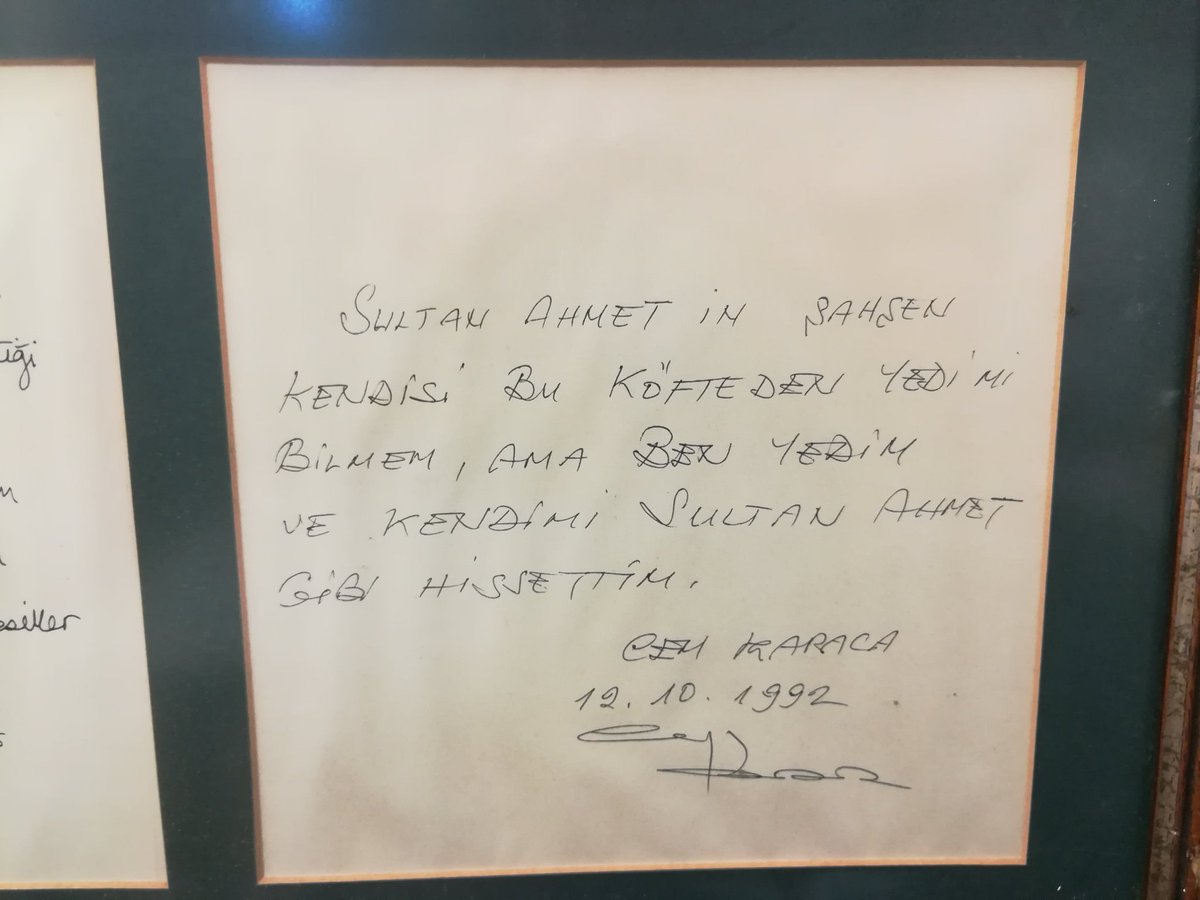 tiği
m
esiller
SULTAN AHMET İN ŞAHSEN
KENDİSİ BU KÖFTEDEN YEDİ Mİ
BİLMEM, AMA BEN YEDİM
VE KENDİMİ SULTAN AHMET
GİBİ HİSSETTİM.
CEM KARACA
12.10.1992